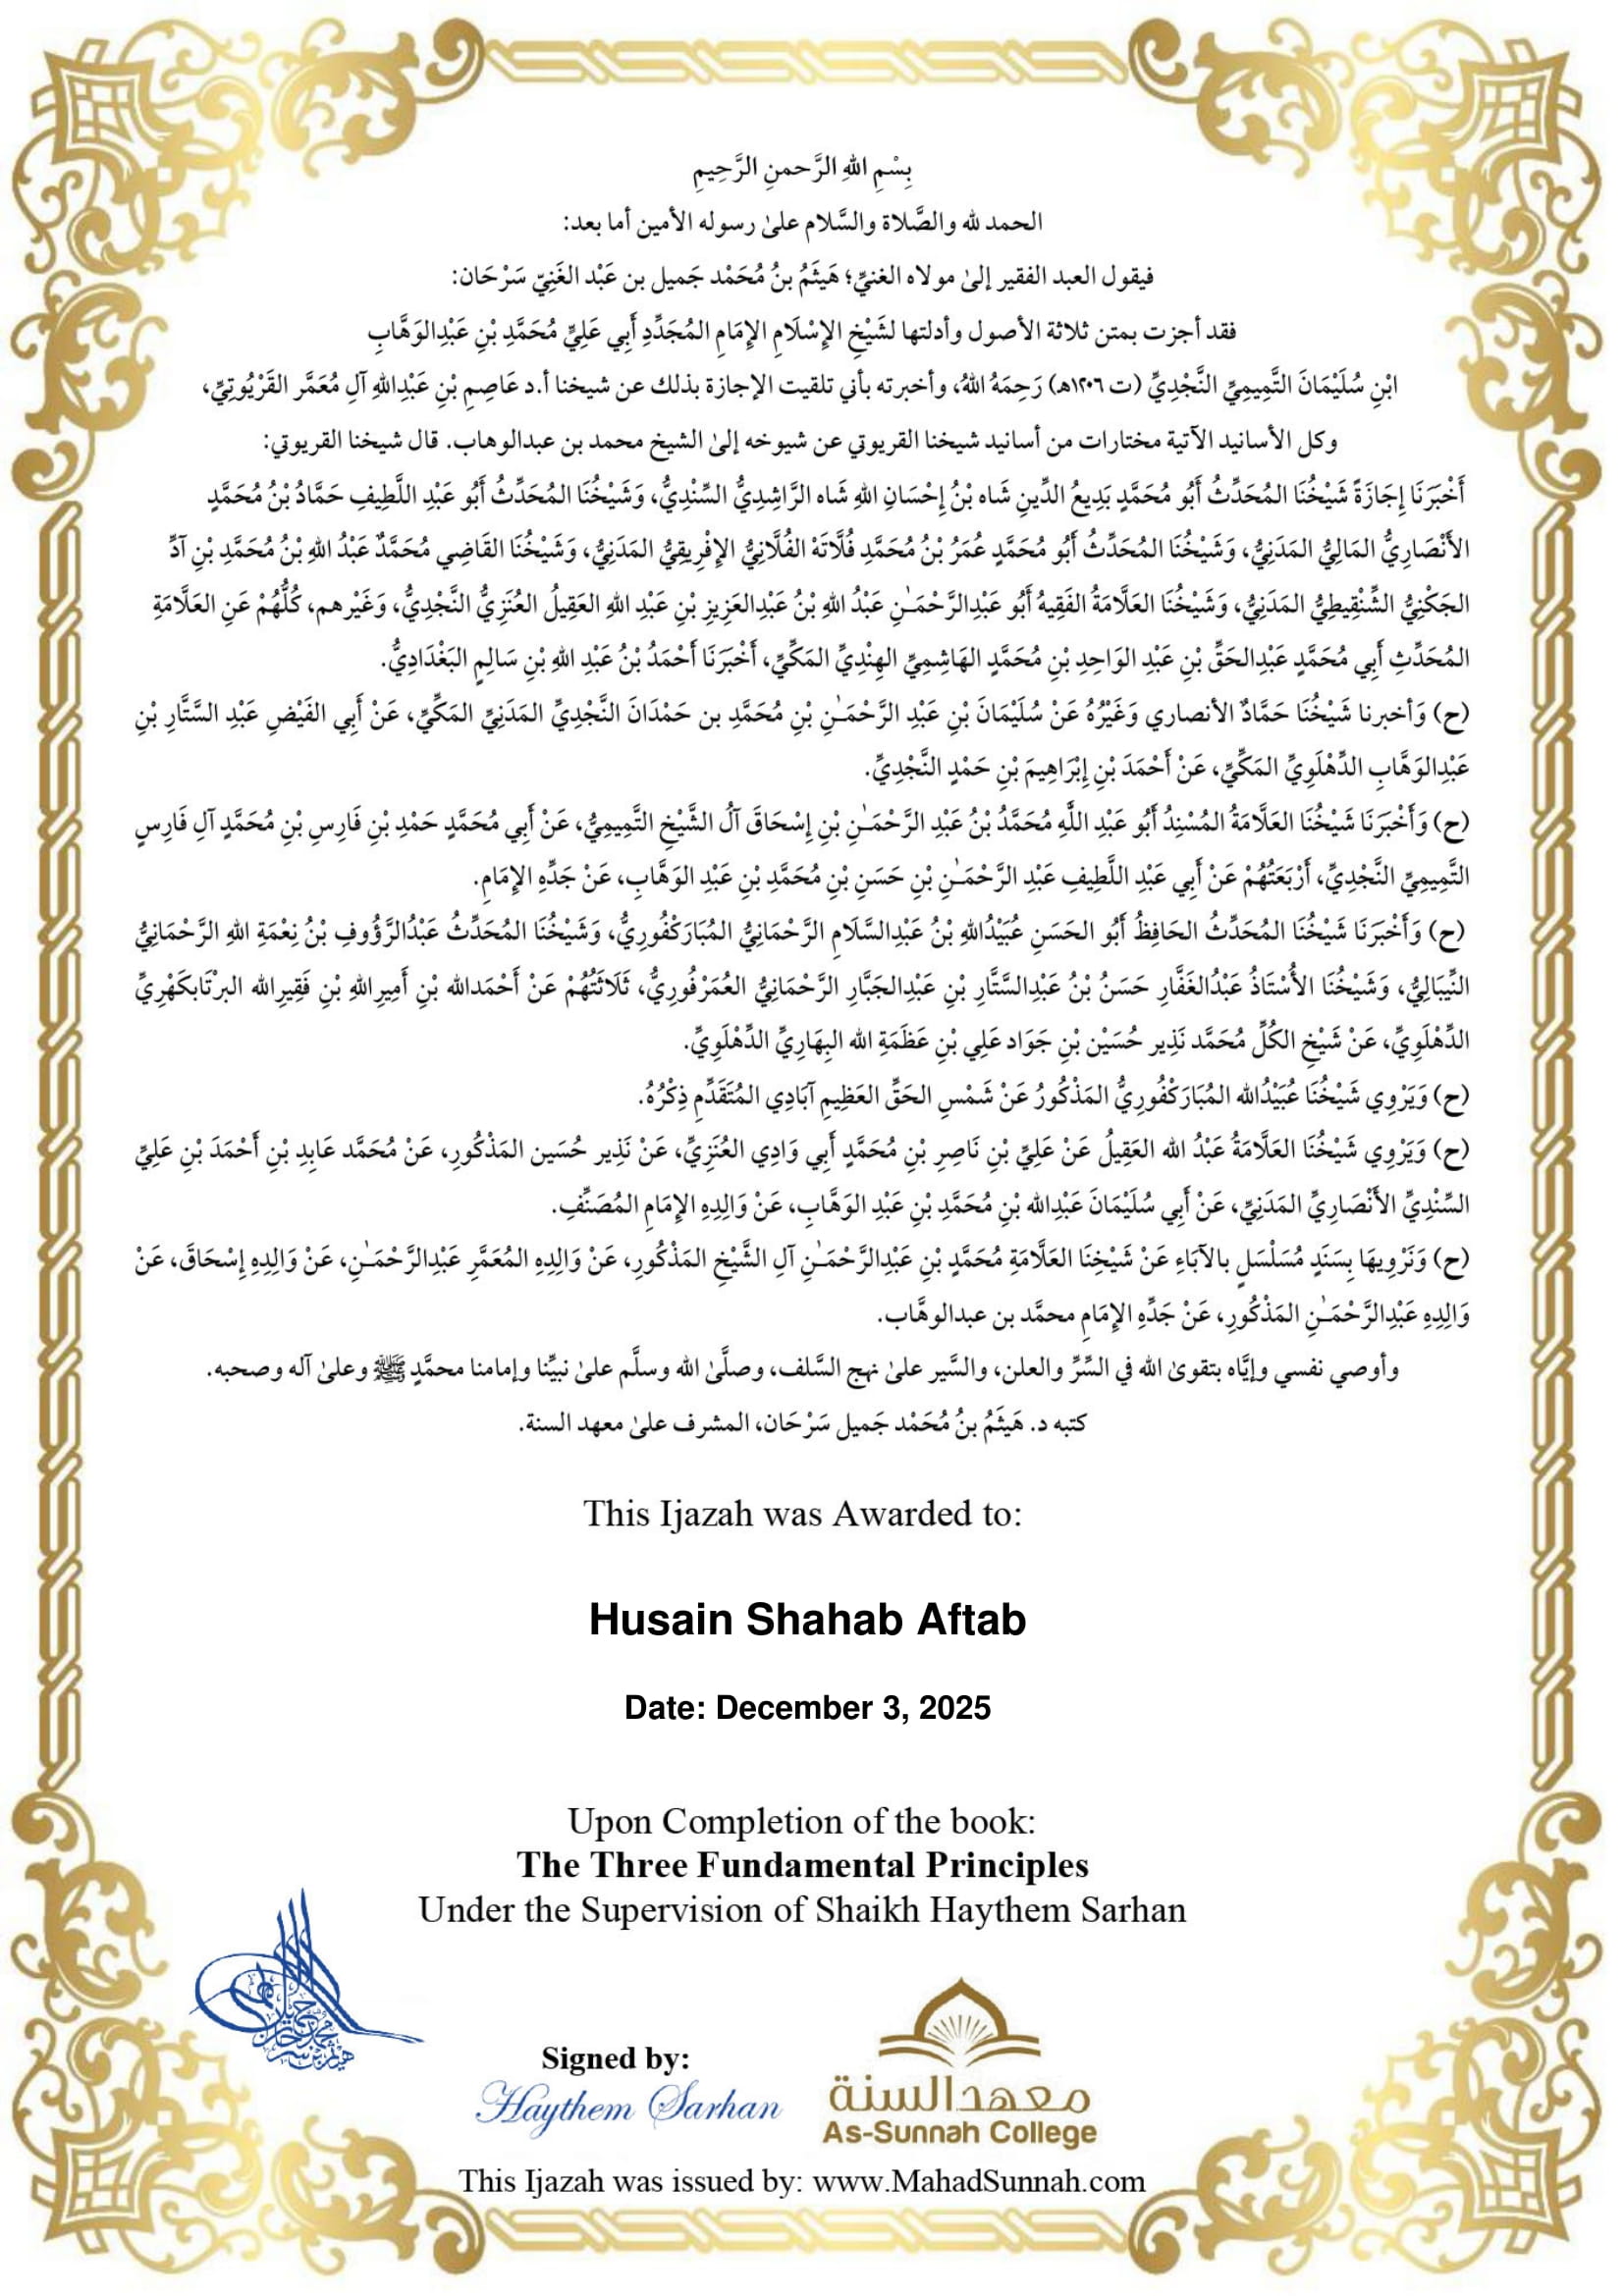 بِسْمِ اللهِ الرَّحمنِ الرَّحِيمِ
الحمد لله والصَّلاة والسَّلام علىٰ رسوله الأمين أما بعد:
فيقول العبد الفقير إلىٰ مولاه الغنيِّ؛ هَيثَمُ بنُ مُحَمْد جَميل بن عَبْد الغَنِيّ سَرْحَان:
فقد أجزت بمتن ثلاثة الأصول وأدلتها لشَيْخِ الإسْلَامِ الإِمَامِ المُجَدِّدِ أَبِي عَلِيٍّ مُحَمَّدِ بْنِ عَبْدِالوَهَّابِ
ابْنِ سُلَيْمَانَ التَّمِيمِيِّ النَّجْدِيِّ (ت ١٢٠٦هـ) رَحِمَهُ اللهُ، وأخبرته بأني تلقيت الإجازة بذلك عن شيخنا أ.د عَاصِمِ بْنِ عَبْدِاللهِ آلِ مُعَمَّر القَرْيُوتِيِّ،
وكل الأسانيد الآتية مختارات من أسانيد شيخنا القريوتي عن شيوخه إلىٰ الشيخ محمد بن عبدالوهاب. قال شيخنا القريوتي:
أَخْبَرَنَا إِجَازَةً شَيْخُنَا المُحَدِّثُ أَبُو مُحَمَّدٍ بَدِيعُ الدِّينِ شَاه بْنُ إِحْسَانِ اللهِ شَاه الرَّاشِدِيُّ السِّنْدِيُّ، وَشَيْخُنَا المُحَدِّثُ أَبُو عَبْدِ اللَّطِيفِ حَمَّادُ بْنُ مُحَمَّدٍ
الأَنْصَارِيُّ المَالِيُّ المَدَنِيُّ، وَشَيْخُنَا المُحَدِّثُ أَبُو مُحَمَّدٍ عُمَرُ بْنُ مُحَمَّدٍ فُلَّاتَهْ الفُلَّانِيُّ الإِفْرِيقِيُّ المَدَنِيُّ، وَشَيْخُنَا القَاضِي مُحَمَّدٌ عَبْدُ اللهِ بْنُ مُحَمَّدِ بْنِ آدَّ
الجَكَنِيُّ الشَّنْقِيطِيُّ المَدَنِيُّ، وَشَيْخُنَا العَلَّامَةُ الفَقِيهُ أَبُو عَبْدِالرَّحْمَـٰنِ عَبْدُ اللهِ بْنُ عَبْدِالعَزِيزِ بْنِ عَبْدِ اللهِ العَقِيلُ العُنَزِيُّ النَّجْدِيُّ، وَغَيْرهم، كُلُّهُمْ عَنِ العَلَّامَةِ
المُحَدِّثِ أَبِي مُحَمَّدٍ عَبْدِالحَقِّ بْنِ عَبْدِ الوَاحِدِ بْنِ مُحَمَّدٍ الهَاشِمِيِّ الهِنْدِيِّ المَكِّيِّ، أَخْبَرَنَا أَحْمَدُ بْنُ عَبْدِ اللهِ بْنِ سَالِمٍ البَغْدَادِيُّ.
(ح) وَأخبرنا شَيْخُنَا حَمَّادٌ الأنصاري وَغَيْرُهُ عَنْ سُلَيْمَانَ بْنِ عَبْدِ الرَّحْمَـٰنِ بْنِ مُحَمَّدِ بن حَمْدَانَ النَّجْدِيِّ المَدَنِيِّ المَكِّيِّ، عَنْ أَبِي الفَيْضِ عَبْدِ السَّتَّارِ بْنِ
عَبْدِالوَهَّابِ الدِّهْلَوِيِّ المَكِّيِّ، عَنْ أَحْمَدَ بْنِ إِبْرَاهِيمَ بْنِ حَمْدٍ النَّجْدِيِّ.
(ح) وَأَخْبَرَنَا شَيْخُنَا العَلَّامَةُ المُسْنِدُ أَبُو عَبْدِ اللَّهِ مُحَمَّدُ بْنُ عَبْدِ الرَّحْمَـٰنِ بْنِ إِسْحَاقَ آلُ الشَّيْخِ التَّمِيمِيُّ، عَنْ أَبِي مُحَمَّدٍ حَمْدِ بْنِ فَارِسِ بْنِ مُحَمَّدٍ آلِ فَارِسٍ
التَّمِيمِيِّ النَّجْدِيِّ، أَرْبَعَتُهُمْ عَنْ أَبِي عَبْدِ اللَّطِيفِ عَبْدِ الرَّحْمَـٰنِ بْنِ حَسَنِ بْنِ مُحَمَّدِ بْنِ عَبْدِ الوَهَّابِ، عَنْ جَدِّهِ الإِمَامِ.
(ح) وَأَخْبَرَنَا شَيْخُنَا المُحَدِّثُ الحَافِظُ أَبُو الحَسَنِ عُبَيْدُاللهِ بْنُ عَبْدِالسَّلَامِ الرَّحْمَانِيُّ المُبَارَكْفُورِيُّ، وَشَيْخُنَا المُحَدِّثُ عَبْدُالرَّؤُوفِ بْنُ نِعْمَةِ اللهِ الرَّحْمَانِيُّ
النِّيبَالِيُّ، وَشَيْخُنَا الأُسْتَاذُ عَبْدُالغَفَّارِ حَسَنُ بْنُ عَبْدِالسَّتَّارِ بْنِ عَبْدِالجَبَّارِ الرَّحْمَانِيُّ العُمَرْفُورِيُّ، ثَلَاثَتُهُمْ عَنْ أَحْمَدالله بْنِ أَمِيرِاللهِ بْنِ فَقِيرِالله البرْتَابكَهْرِيِّ
الدِّهْلَوِيِّ، عَنْ شَيْخِ الكُلِّ مُحَمَّد نَذِير حُسَيْن بْنِ جَوَاد عَلِي بْنِ عَظَمَةِ الله البِهَارِيِّ الدِّهْلَوِيِّ.
(ح) وَيَرْوِي شَيْخُنَا عُبَيْدُالله المُبَارَكْفُورِيُّ المَذْكُورُ عَنْ شَمْسِ الحَقِّ العَظِيمِ آبَادِي المُتَقَدِّمِ ذِكْرُهُ.
(ح) وَيَرْوِي شَيْخُنَا العَلَّامَةُ عَبْدُ الله العَقِيلُ عَنْ عَلِيِّ بْنِ نَاصِرِ بْنِ مُحَمَّدٍ أَبِي وَادِي العُنَزِيِّ، عَنْ نَذِير حُسَين المَذْكُورِ، عَنْ مُحَمَّد عَابِدِ بْنِ أَحْمَدَ بْنِ عَلِيٍّ
السِّنْدِيِّ الأَنْصَارِيِّ المَدَنِيِّ، عَنْ أَبِي سُلَيْمَانَ عَبْدِالله بْنِ مُحَمَّدِ بْنِ عَبْدِ الوَهَّابِ، عَنْ وَالِدِهِ الإِمَامِ المُصَنِّفِ.
(ح) وَنَرْوِيهَا بِسَنَدٍ مُسَلْسَلٍ بالآبَاءِ عَنْ شَيْخِنَا العَلَّامَةِ مُحَمَّدِ بْنِ عَبْدِالرَّحْمَـٰنِ آلِ الشَّيْخِ المَذْكُورِ، عَنْ وَالِدِهِ المُعَمَّرِ عَبْدِالرَّحْمَـٰنِ، عَنْ وَالِدِهِ إِسْحَاقَ، عَنْ
وَالِدِهِ عَبْدِالرَّحْمَـٰنِ المَذْكُورِ، عَنْ جَدِّهِ الإِمَامِ محمَّد بن عبدالوهَّاب.
وأوصي نفسي وإيَّاه بتقوىٰ الله في السِّرِّ والعلن، والسَّير علىٰ نهج السَّلف، وصلَّىٰ الله وسلَّم علىٰ نبيِّنا وإمامنا محمَّدٍ ﷺ وعلىٰ آله وصحبه.
كتبه د. هَيثَمُ بنُ مُحَمْد جَميل سَرْحَان، المشرف علىٰ معهد السنة.
This Ijazah was Awarded to:
Husain Shahab Aftab
Date: December 3, 2025
Upon Completion of the book:
The Three Fundamental Principles
Under the Supervision of Shaikh Haythem Sarhan
هيثم بن محمد جميل سرحان
Signed by:
Haythem Sarhan
معهد السنة
As-Sunnah College
This Ijazah was issued by: www.MahadSunnah.com